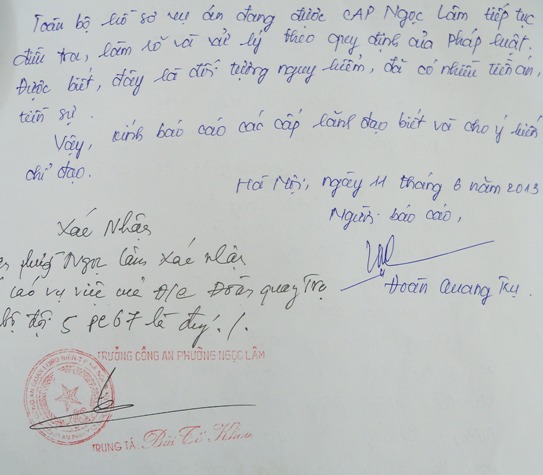 Toàn bộ hồ sơ vụ án đang được CAP Ngọc Lâm tiếp tục
điều tra, làm rõ và xử lý theo quy định của pháp luật.
Được biết, đây là đối tượng nguy hiểm, đã có nhiều tiền án,
tiền sự.
Vậy, kính báo cáo các cấp lãnh đạo biết và cho ý kiến
chỉ đạo.
Hà Nội, ngày 11 tháng 6 năm 2013
Người báo cáo,
Đoàn Quang Trụ.
Xác Nhận
phường Ngọc Lâm xác nhận
cáo vụ việc của Đ/c Đoàn Quang Trụ
bộ đội 5 PC67 là đúng./.
TRƯỞNG CÔNG AN PHƯỜNG NGỌC LÂM
TRUNG TÁ: Bùi Tố